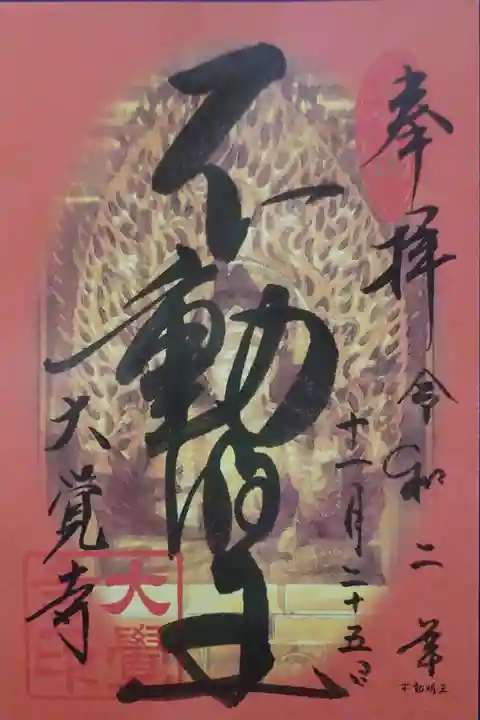 奉拝
令和二年
十一月二十五日
不動明王
大覚寺
大覺
不動明王